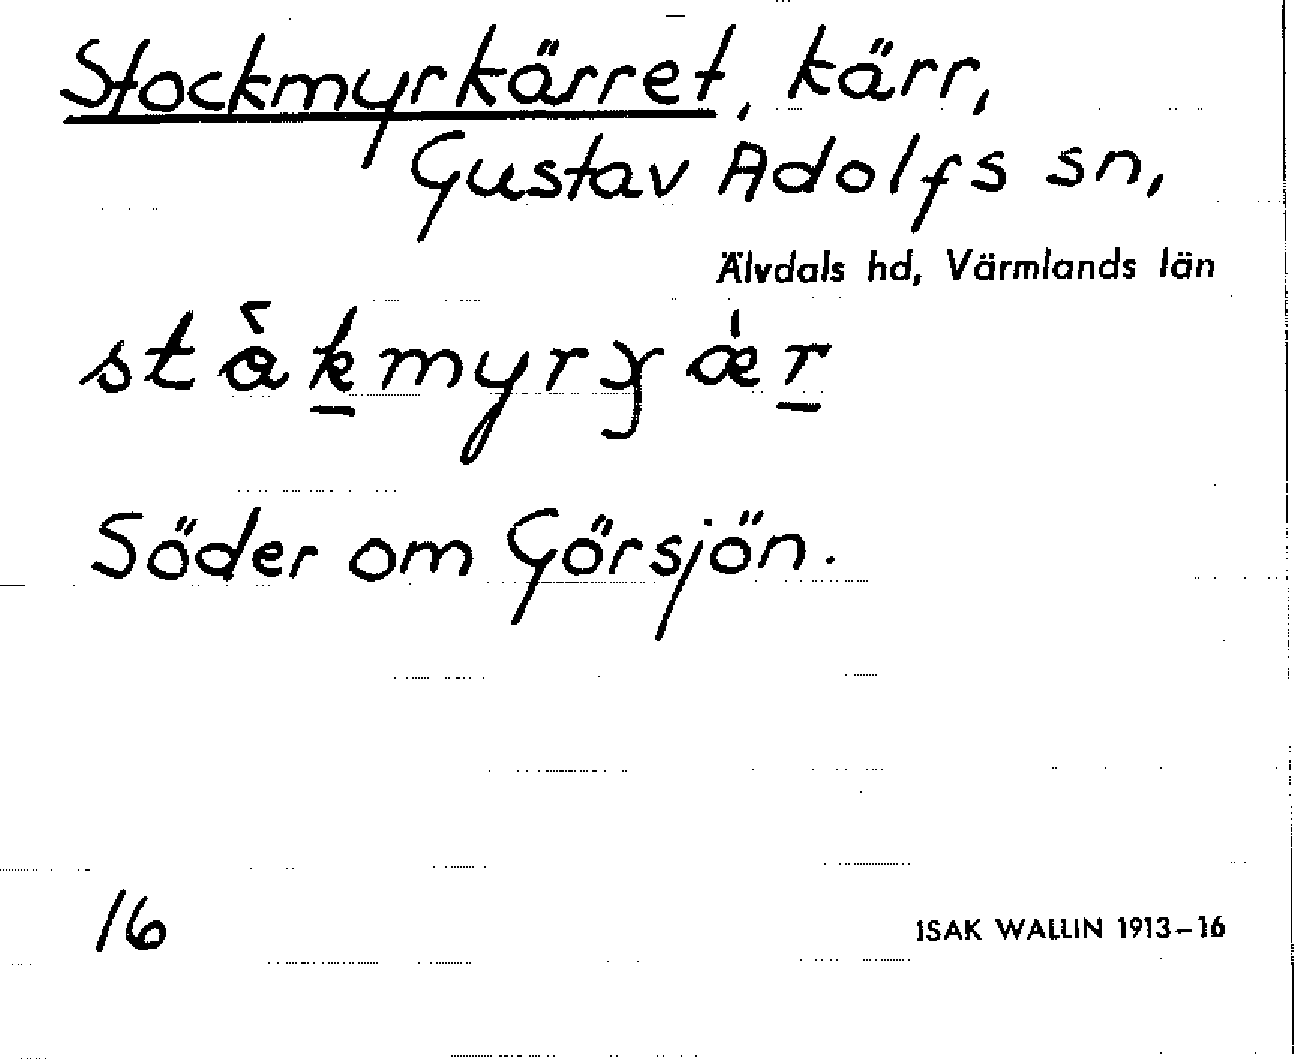 Stockmyrkärret, kärr,
Gustav Adolfs sn,
Älvdals hd, Värmlands län
Söder om Görsjön.
16
ISAK WALLIN 1913-16